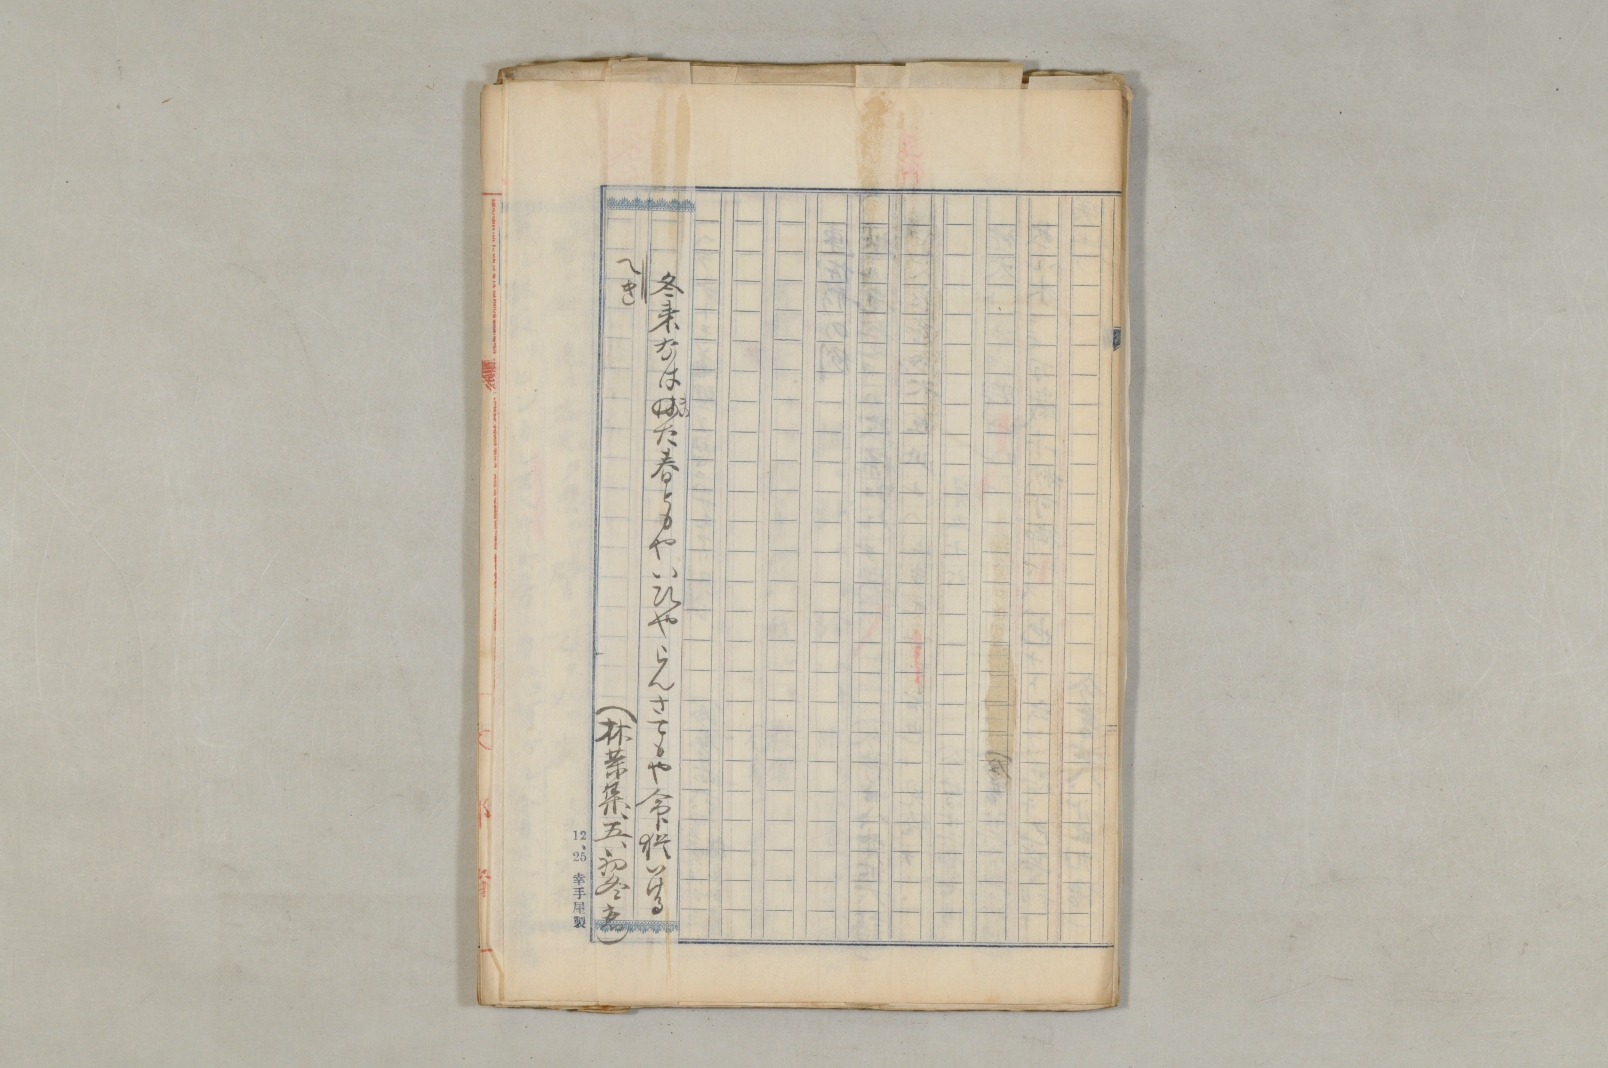 冬来なはた春ともやいひやらんさてもや命猶いける
へき
(林葉集、五、初冬恋)
12、25 幸手屋製